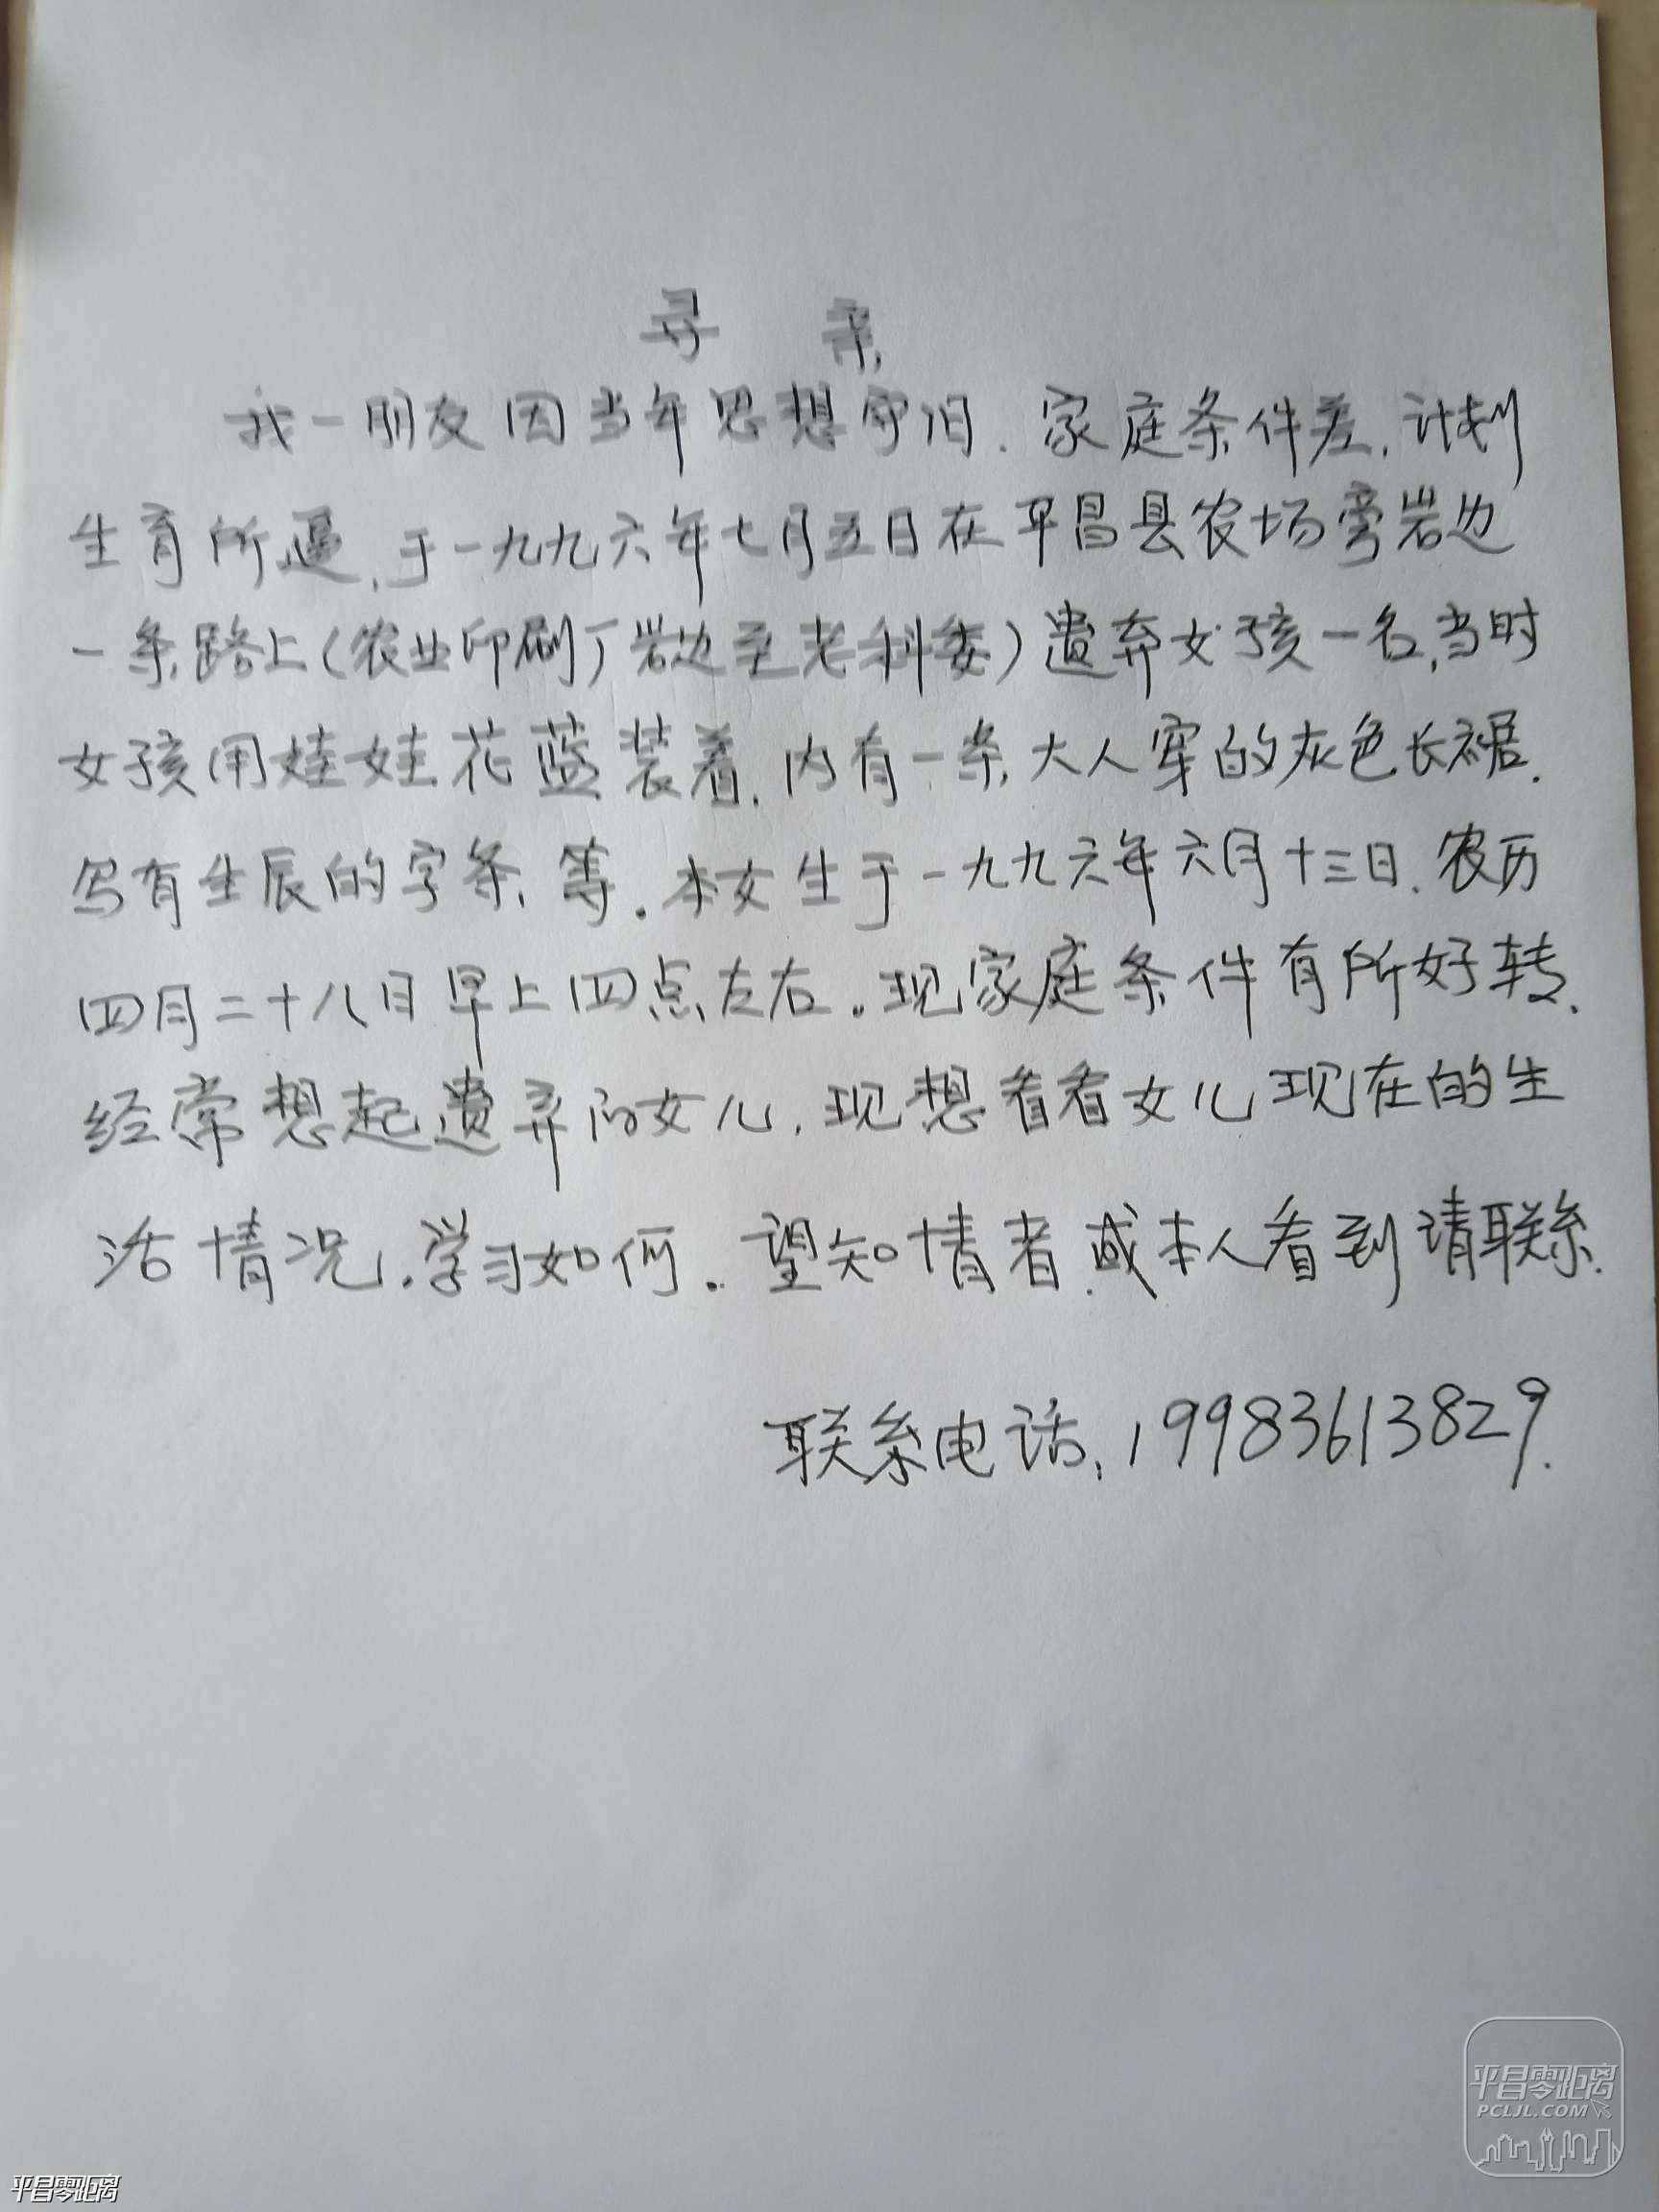 寻 亲
我一朋友因当年思想守旧.家庭条件差.计划
生育所逼,于一九九六年七月五日在平昌县农场旁岩边
一条路上(农业印刷厂岩边至老科委)遗弃女孩一名,当时
女孩用娃娃花蓝装着.内有一条大人穿的灰色长裙.
写有生辰的字条等.本女生于一九九六年六月十三日.农历
四月二十八日早上四点左右.现家庭条件有所好转.
经常想起遗弃的女儿.现想看看女儿现在的生
活情况.学习如何.望知情者.或本人看到请联系.
联系电话:19983613829.
平昌零距离
PCLJL.COM
平昌零距离